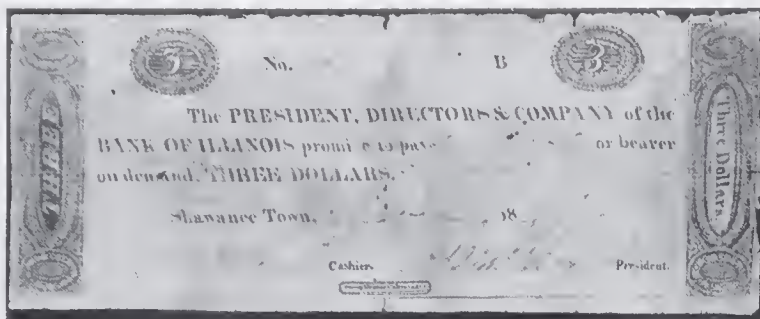 3 No. B 3
THREE
The PRESIDENT, DIRECTORS & COMPANY of the
BANK OF ILLINOIS promise to pay or bearer
on demand, THREE DOLLARS.
Shawanee Town, 18
Cashier. President.
Three Dollars.